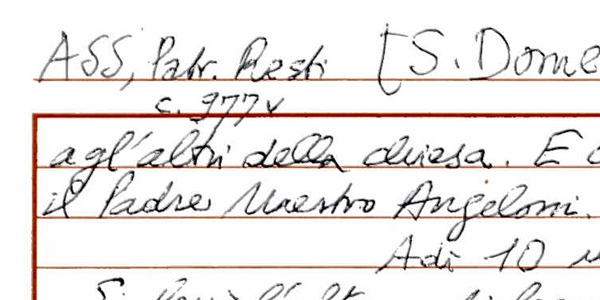 ASS, Patr. Resti [S. Dome
c. 977v
agl'altri della chiesa. E
il Padre Maestro Angeloni.
Adì 10